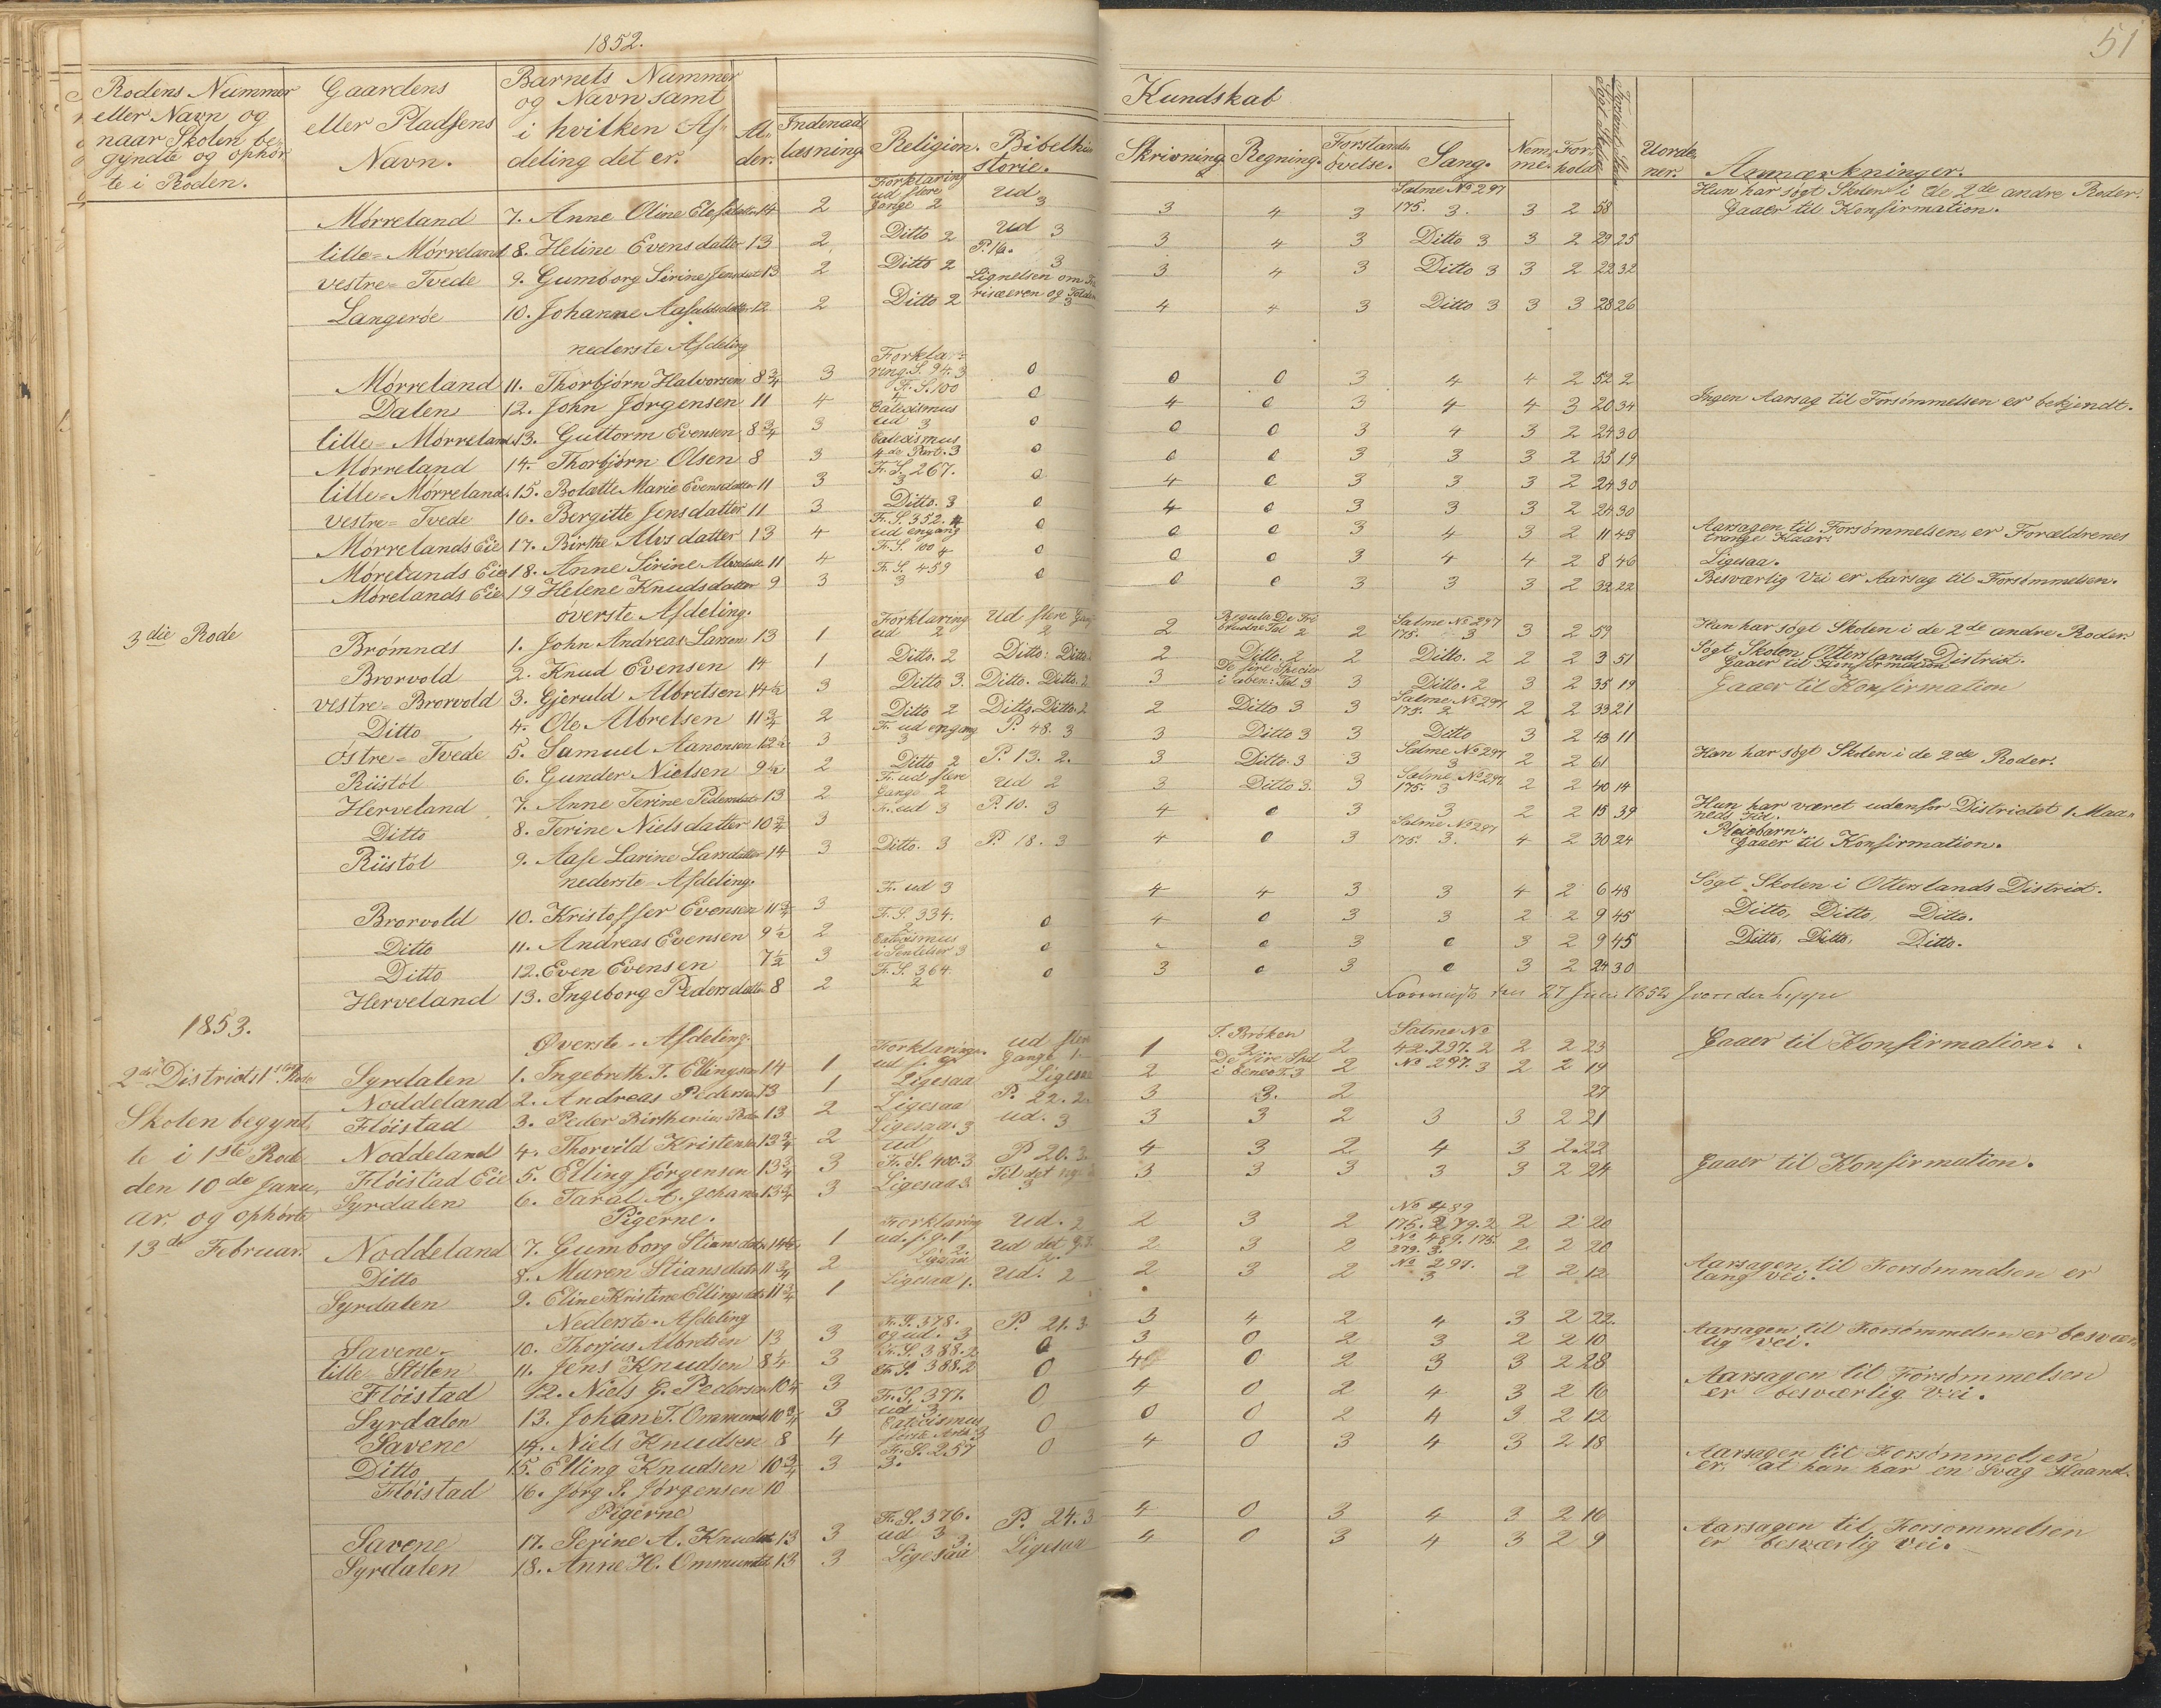 1852.
51
Rodens Nummer eller Navn og naar Skolen begyndte og ophørte i Roden.
Gaardens eller Pladsens Navn.
Barnets Nummer og Navn samt i hvilken Afdeling det er.
Alder.
Kundskab
Indenadlæsning
Religion.
Bibelhistorie.
Skrivning
Regning.
Forstandsøvelse.
Sang.
Nemme.
Forhold
Søgt Skolen
Forsømt Skolen
Uordener.
Anmærkninger.
Mørreland 7. Anne Oline datter 14 2 Forklaring ud flere Gange 2 Ud 3 3 4 3 Salme No 297 175. 3. 3 2 58 Hun har søgt Skolen i de 2de andre Roder. Gaaer til Konfirmation.
lille-Mørreland 8. Heline Evensdatter 13 2 Ditto 2 Ud 3 3 4 3 Ditto 3 3 2 29 25
vestre-Tvede 9. Gumborg Sirine Jensdatter 13 2 Ditto 2 P. 16. 3 3 4 3 Ditto 3 3 2 22 32
Langerøe 10. Johanne datter 12 2 Ditto 2 Lignelsen om Farisæeren og Tolderen 3 4 4 3 Ditto 3 3 3 28 26
nederste Afdeling
Mørreland 11. Thorbjørn Halvorsen 8 3/4 3 Forklaring. S. 94. 3 0 0 0 3 4 4 2 52 2
Dalen 12. John Jørgensen 11 4 Fr. S. 100 4 0 4 0 3 4 4 3 20 34 Ingen Aarsag til Forsømmelsen er bekjendt.
lille-Mørreland 13. Guttorm Evensen 8 3/4 3 Catecismus ud 3 0 0 0 3 4 3 2 24 30
Mørreland 14. Thorbjørn Olsen 8 3 Catecismus 4de Part. 3 0 0 0 3 3 3 2 35 19
lille-Mørreland 15. Bolette Marie Evensdatter 11 3 Fr. S. 267. 3 0 4 0 3 3 3 2 24 30
vestre-Tvede 16. Bergitte Jensdatter 11 3 Ditto. 3 0 4 0 3 3 3 2 24 30
Mørrelands Eie 17. Birthe Alvsdatter 13 4 Fr. S. 352. 4 ud engang 0 0 0 3 4 3 2 11 43 Aarsagen til Forsømmelsen, er Forældrenes trange Kaar.
Mørelands Eie 18. Anne Sirine datter 11 4 Fr. S. 100 4 0 0 0 3 4 4 2 8 46 Ligesaa.
Mørelands Eie 19 Helene Knudsdatter 9 3 Fr. S. 459 3 0 0 0 3 3 3 2 32 22 Besværlig Vei er Aarsag til Forsømmelsen.
3die Rode
øverste Afdeling.
Brømnds 1. John Andreas Larsen 13 1 Forklaring ud 2 Ud flere Gange 2 2 Regula De Tri brudne Tal 2 2 Salme No 297 175. 3 3 2 59 Han har søgt Skolen i de 2de andre Roder.
Brorvold 2. Knud Evensen 14 1 Ditto. 2 Ditto: Ditto 2 Ditto. 2 2 Ditto. 2 2 2 3 51 Søgt Skolen Otterslands District. Gaaer til Konfirmation
vestre-Brorvold 3. Gjeruld Albretsen 14 1/2 3 Ditto 3. Ditto. Ditto. 2 3 De fire Specier i aben: Tal 3 3 Ditto. 2 3 2 35 19 Gaaer til Konfirmation
Ditto 4. Ole Albretsen 11 3/4 2 Ditto 2 Ditto. Ditto. 2 2 Ditto 3 3 Salme No 297 175. 2 2 2 33 21
østre-Tvede 5. Samuel Aanonsen 12 1/2 3 Fr. ud engang 3 P. 48. 3 3 Ditto 3 3 Ditto 3 2 43 11
Riistøl 6. Gunder Nielsen 9 1/2 2 Ditto 2 P. 13. 2. 3 Ditto. 3 3 Salme No 297 3 2 2 61 Han har søgt Skolen i de 2de Roder.
Herveland 7. Anne Terine Pedersdatter 13 2 Fr. ud flere Gange 2 Ud 2 3 Ditto 3. 3 Salme No 297 175. 3 2 2 40 14
Ditto 8. Terine Nielsdatter 10 3/4 3 Fr. ud 3 P. 10. 3 4 0 3 3 2 2 15 39 Hun har været udenfor Districtet 1 Maaneds Tid.
Riistøl 9. Aase Larine Larsdatter 14 3 Ditto. 3 P. 18. 3 4 0 3 Salme No 297 175. 3. 4 2 30 24 Pleiebarn. Gaaer til Konfirmation.
nederste-Afdeling.
Brorvold 10. Kristoffer Evensen 11 3/4 3 Fr. ud 3 4 4 3 3 4 2 6 48 Søgt Skolen i Otterslands District.
Ditto 11. Andreas Evensen 9 1/2 2 Fr. S. 334. 2 0 4 0 3 3 2 2 9 45 Ditto, Ditto, Ditto.
Ditto 12. Even Evensen 7 1/2 3 Catecismus i Sentelser 3 0 0 3 0 3 2 9 45 Ditto, Ditto, Ditto.
Herveland 13. Ingeborg Pedersdatter 8 2 Fr. S. 364. 2 0 3 0 3 0 3 2 24 30
27 Juli 1852
1853.
2det Districts 1ste Rode
Skolen begyndte i 1ste Rode den 10de Januar, og ophørte 13de Februar.
Øverste-Afdeling.
Syrdalen 1. Ingebreth T. Ellingsen 14 1 Forklaringen ud f. g. Ud flere Gange 1 1 T. Brøken 2 2 Salme No 42. 297. 2 2 2 23 Gaaer til Konfirmation.
Noddeland 2. Andreas Pedersen 13 1 Ligesaa Ligesaa 2 De fire Spd. i Eenes T. 3 2 No 297. 3 2 2 19
Fløistad 3. Peder Birthinius 13 2 Ligesaa P. 22. 2. 3 3. 2 27
Noddeland 4. Thorvild Kristensen 13 3/4 2 Ligesaa. 3 Ud. 3 3 3 2 3 3 2 21
Fløistad Eie 5. Elling Jørgensen 13 3/4 3 ud Fr. S. 400. 3 P. 20. 3. 4 3 2 4 3 2 22
Syrdalen 6. Taral A. 13 3/4 3 Ligesaa 3. Til det 3 3 3 3 3 3 2 24 Gaaer til Konfirmation.
Pigerne.
Noddeland 7. Gumborg Stiansdatter 14 1/2 1 Forklaring ud. f. g. 1 Ud. 2 2 3 2 No 489 175. 279. 2 2 2 20
Ditto 8. Maren Stiansdatter 11 3/4 2 Ligesaa 2. Ud det 2 3 2 No 489. 175. 279. 3. 2 2 20
Syrdalen 9. Eline Kristine Ellingsdatter 11 3/4 1 Ligesaa 1. Ud. 2 2 3 2 No 297. 3 2 2 12 Aarsagen til Forsømmelsen er lang vei.
Nederste-Afdeling
Savene 10. Thorjus Albretsen 13 3 Fr. S. 378. og ud. 3 P. 21. 3. 3 4 2 4 3 2 22.
lille Stølen 11. Jens Knudsen 8 1/4 3 Fr. S. 388. 2 0 3 0 2 3 2 2 10 Aarsagen til Forsømmelsen er besværlig Vei.
Fløistad 12. Niels G. Pedersen 10 1/4 3 Fr. S. 388. 2 0 4 0 2 3 3 2 28
Syrdalen 13. Johan T. Ommunds 10 3/4 3 Fr. S. 377. ud 3 0 4 0 2 4 3 2 16 Aarsagen til Forsømmelsen er besværlig Vei.
Savene 14. Niels Knudsen 8 4 Catecismus første Arth. 3 0 0 0 2 4 3 2 12
Ditto 15. Elling Knudsen 10 3/4 3 Fr. S. 257 3. 0 4 0 3 4 3 2 18
Fløistad 16. Jørg S. Jørgensen 10 Aarsagen til Forsømmelsen er, at han har en Svag Haand.
Pigerne
Savene 17. Serine A. Knudsdt. 13 3 Fr. S. 376. ud 3 P. 24. 3 4 0 3 4 3 2 16
Syrdalen 18. Anne H. Ommundsdt. 13 3 Ligesaa 3 Ligesaa 4 0 3 4 3 2 9 Aarsagen til Forsømmelsen er besværlig Vei.